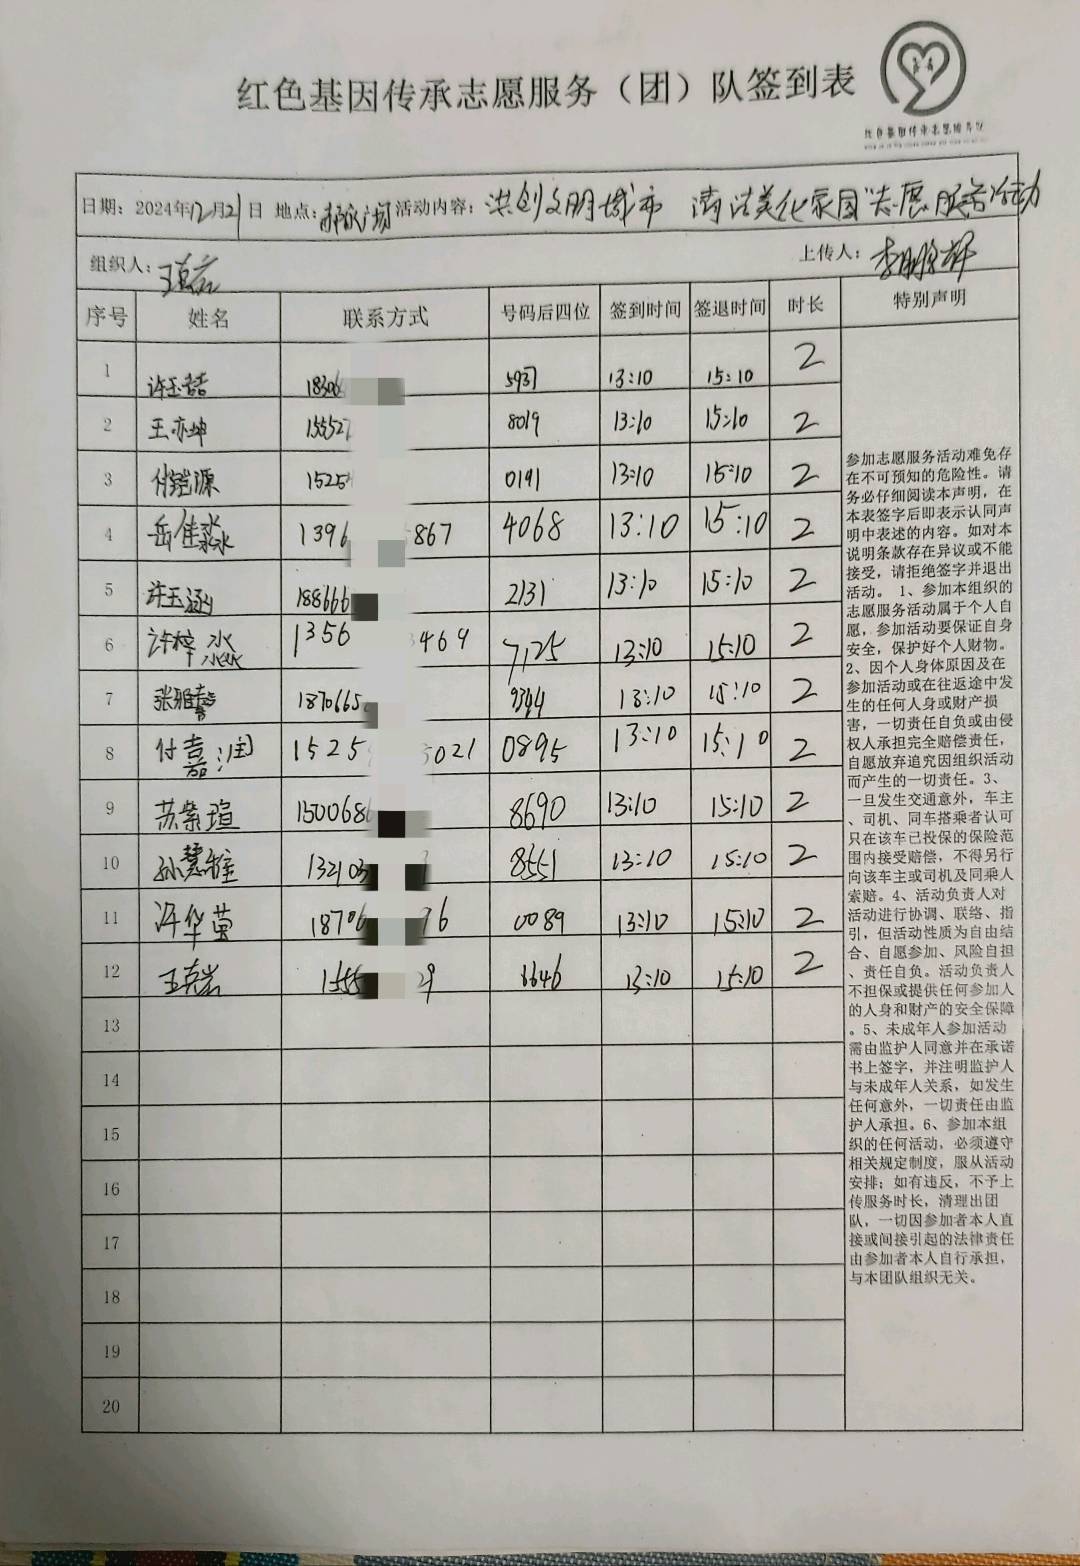 红色基因传承志愿服务（团）队签到表
红色基因传承志愿服务队
日期：2024年12月21日 地点： 广场 活动内容：洪创文明城市 清洁美化家园"志愿服务活动
组织人：王克岩 上传人：
序号 姓名 联系方式 号码后四位 签到时间 签退时间 时长 特别声明
1 许玉喆 18306 5937 13:10 15:10 2
2 王亦坤 15552 8019 13:10 15:10 2
3 付铠源 1525 0191 13:10 15:10 2
4 岳佳淼 1396 867 4068 13:10 15:10 2
5 许玉涵 188666 2131 13:10 15:10 2
6 许梓淼 1356 3469 7125 13:10 15:10 2
7 张雅馨 1870665 9344 13:10 15:10 2
8 付嘉润 1525 5021 0895 13:10 15:10 2
9 苏紫瑄 1500686 8690 13:10 15:10 2
10 孙慧 132103 8551 13:10 15:10 2
11 许华莹 18706 76 0089 13:10 15:10 2
12 王克岩 1555 29 6646 13:10 15:10 2
13
14
15
16
17
18
19
20
参加志愿服务活动难免存
在不可预知的危险性。请
务必仔细阅读本声明，在
本表签字后即表示认同声
明中表述的内容。如对本
说明条款存在异议或不能
接受，请拒绝签字并退出
活动。 1、参加本组织的
志愿服务活动属于个人自
愿，参加活动要保证自身
安全，保护好个人财物。
2、因个人身体原因及在
参加活动或在往返途中发
生的任何人身或财产损
害，一切责任自负或由侵
权人承担完全赔偿责任，
自愿放弃追究因组织活动
而产生的一切责任。3、
一旦发生交通意外，车主
、司机、同车搭乘者认可
只在该车已投保的保险范
围内接受赔偿，不得另行
向该车主或司机及同乘人
索赔。4、活动负责人对
活动进行协调、联络、指
引，但活动性质为自由结
合、自愿参加、风险自担
、责任自负。活动负责人
不担保或提供任何参加人
的人身和财产的安全保障
。5、未成年人参加活动
需由监护人同意并在承诺
书上签字，并注明监护人
与未成年人关系，如发生
任何意外，一切责任由监
护人承担。6、参加本组
织的任何活动，必须遵守
相关规定制度，服从活动
安排；如有违反，不予上
传服务时长，清理出团
队，一切因参加者本人直
接或间接引起的法律责任
由参加者本人自行承担，
与本团队组织无关。